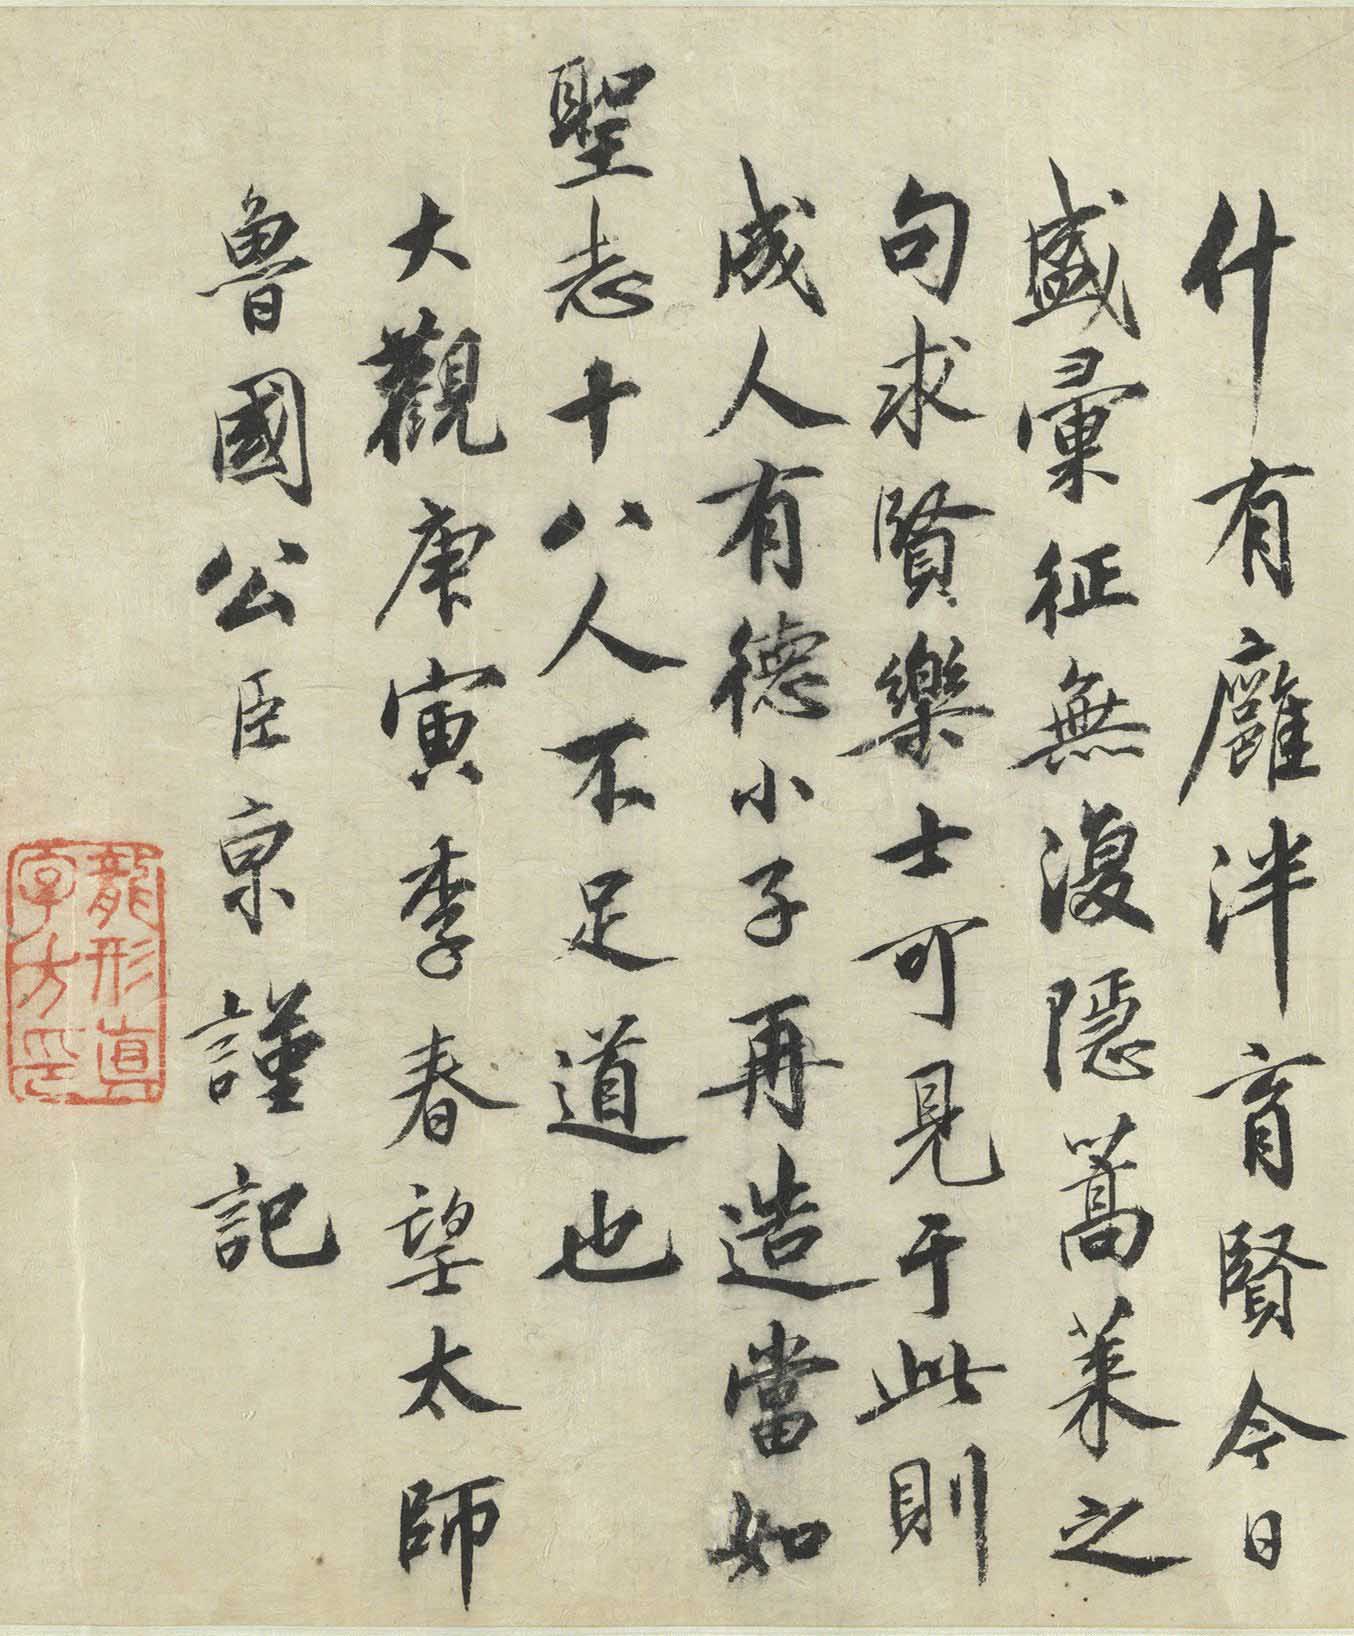 什有廱泮育賢今日
盛彙征無復隱蒿萊之
句求賢樂士可見于此則
成人有德小子再造當如
聖志十八人不足道也
大觀庚寅季春望太師
魯國公臣京謹記
龍形直
字方印